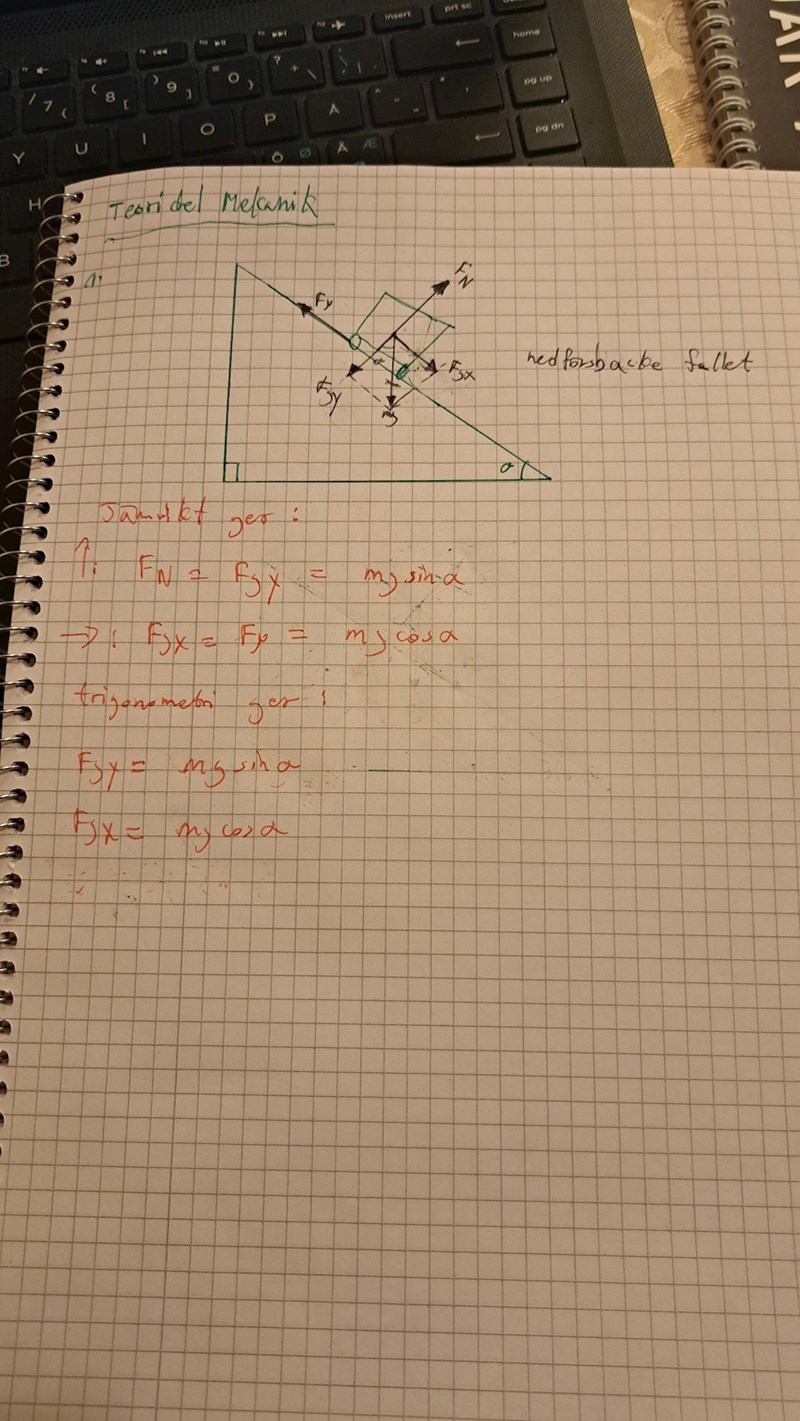 insert
prt sc
home
/ 7 (
8 [
) 9 ]
= 0 }
? + \
pg up
Y U I O P Å
pg dn
H
Ö Ø Ä Æ
B
Teoridel Mekanik
1.
FN
Fμ
α
Fgx
Fgy
mg
nedförsbacke fallet
α
Jämvikt ger :
↑: FN = Fgy = mg sin α
→: Fgx = Fμ = mg cos α
trigonometri ger :
Fgy = mg sin α
Fgx = mg cos α